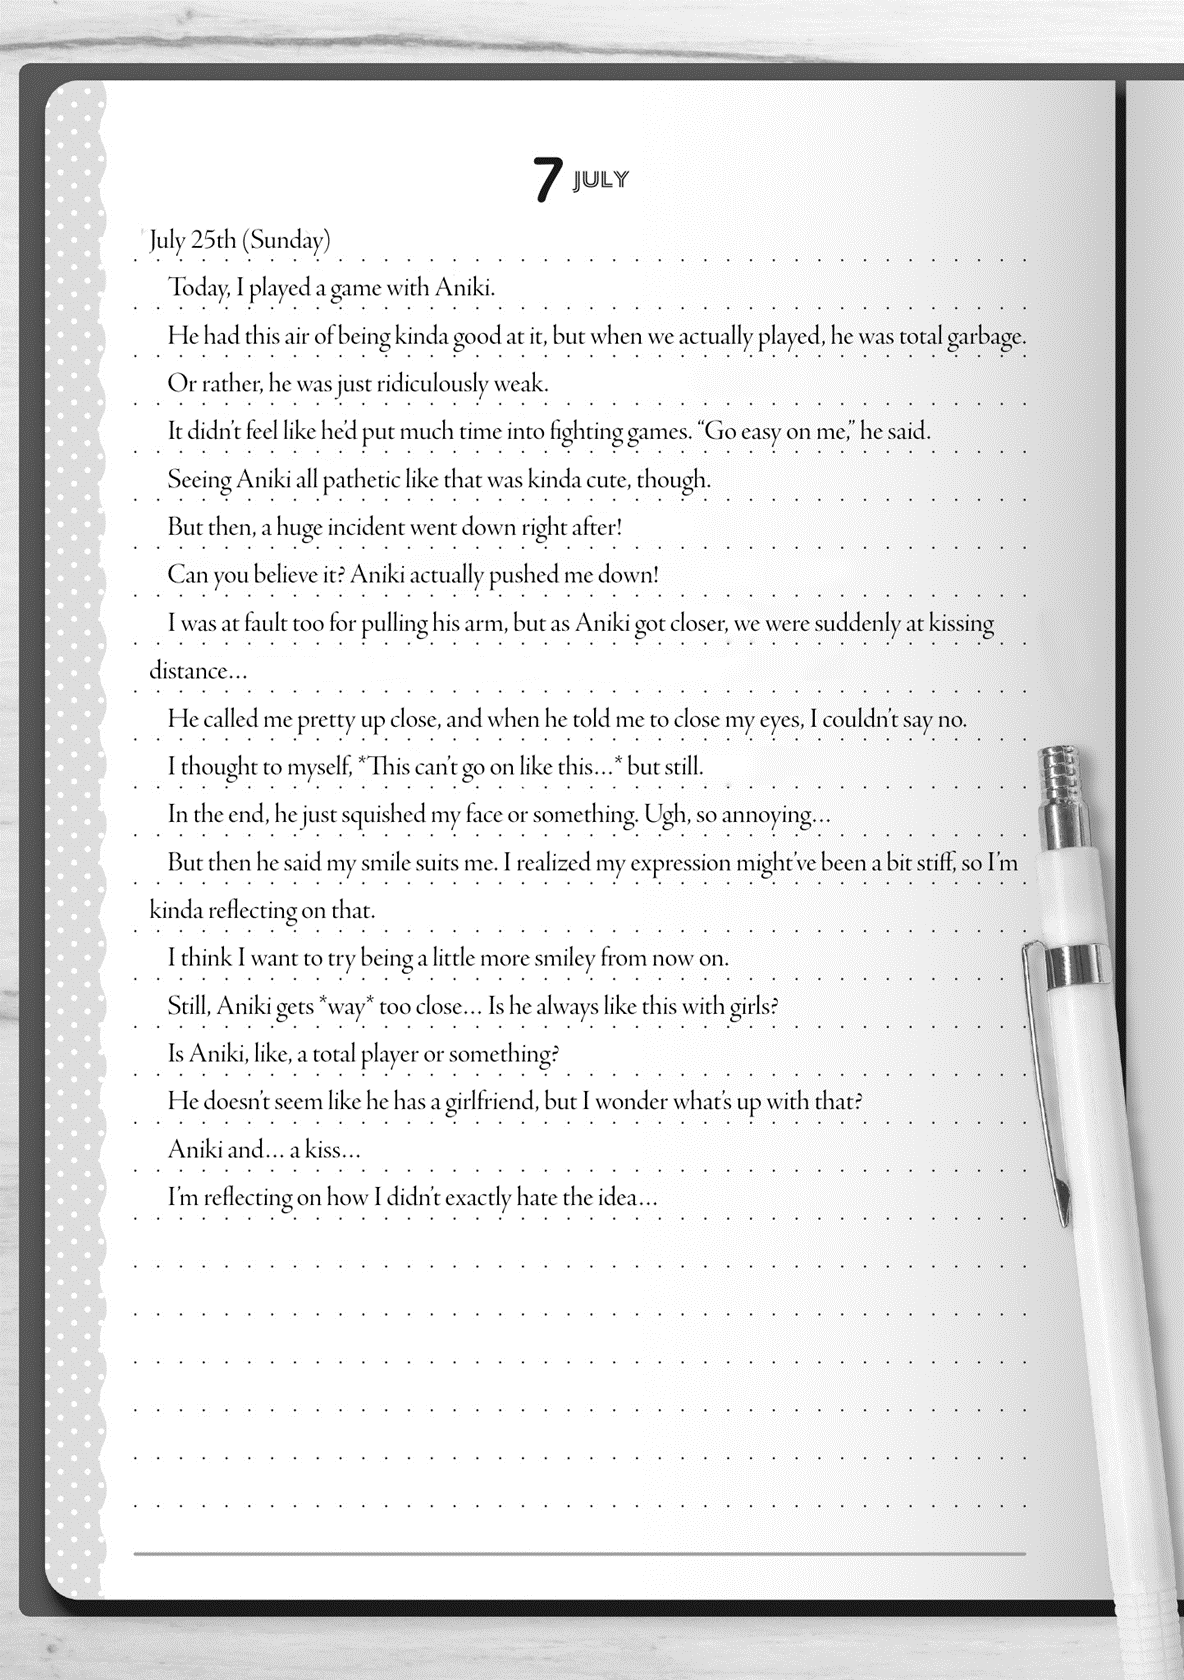 7 JULY
July 25th (Sunday)
Today, I played a game with Aniki.
He had this air of being kinda good at it, but when we actually played, he was total garbage.
Or rather, he was just ridiculously weak.
It didn’t feel like he’d put much time into fighting games. “Go easy on me,” he said.
Seeing Aniki all pathetic like that was kinda cute, though.
But then, a huge incident went down right after!
Can you believe it? Aniki actually pushed me down!
I was at fault too for pulling his arm, but as Aniki got closer, we were suddenly at kissing
distance…
He called me pretty up close, and when he told me to close my eyes, I couldn’t say no.
I thought to myself, *This can’t go on like this…* but still.
In the end, he just squished my face or something. Ugh, so annoying…
But then he said my smile suits me. I realized my expression might’ve been a bit stiff, so I’m
kinda reflecting on that.
I think I want to try being a little more smiley from now on.
Still, Aniki gets *way* too close… Is he always like this with girls?
Is Aniki, like, a total player or something?
He doesn’t seem like he has a girlfriend, but I wonder what’s up with that?
Aniki and… a kiss…
I’m reflecting on how I didn’t exactly hate the idea…